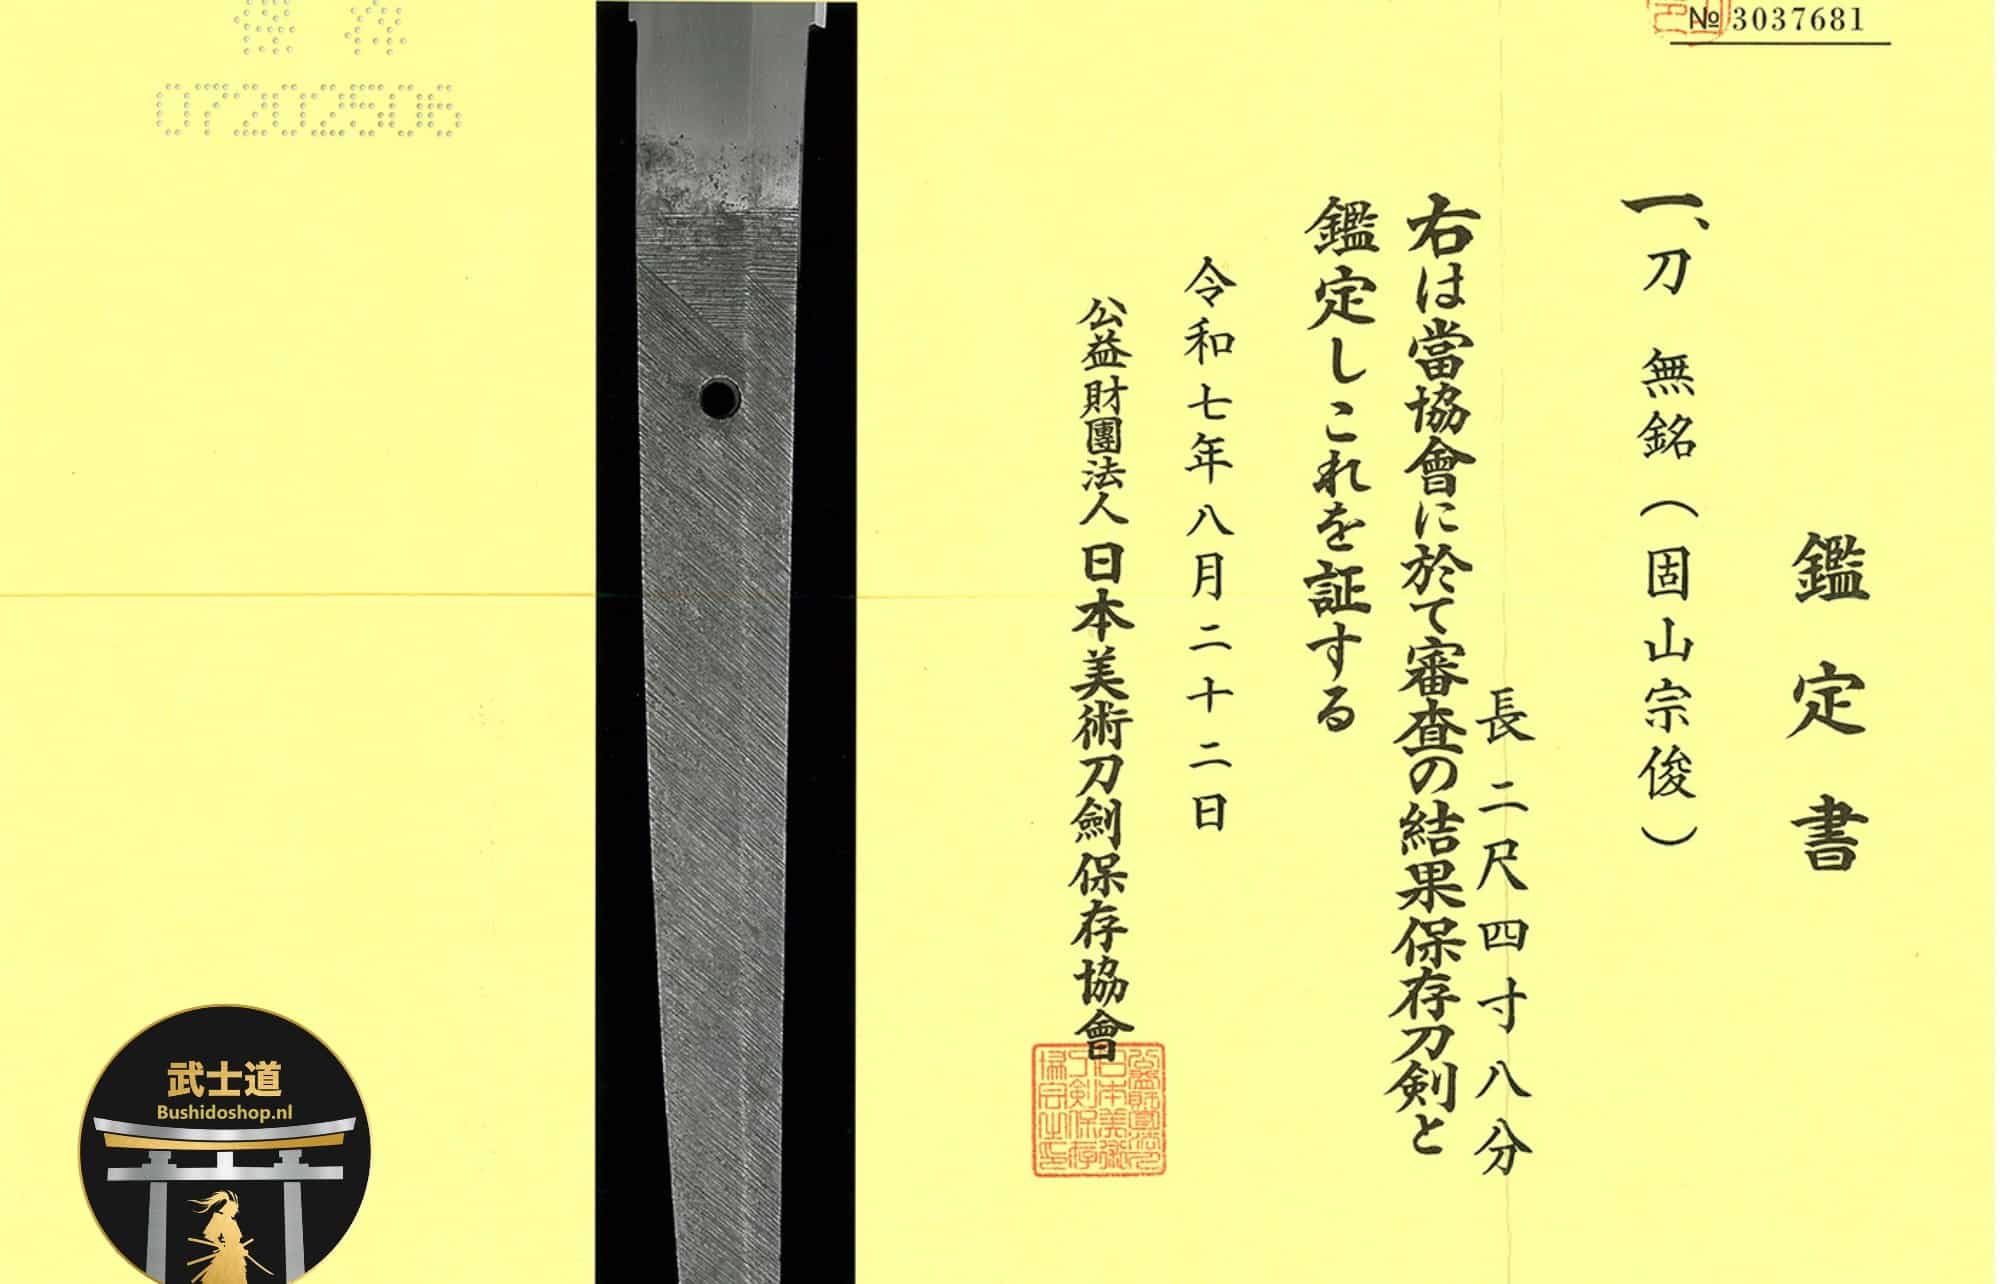 № 3037681
鑑定書
一、刀 無銘（固山宗俊）
長二尺四寸八分
右は當協會に於て審査の結果保存刀剣と
鑑定しこれを証する
令和七年八月二十二日
公益財團法人日本美術刀劍保存協會
保存
07202506
武士道
Bushidoshop.nl